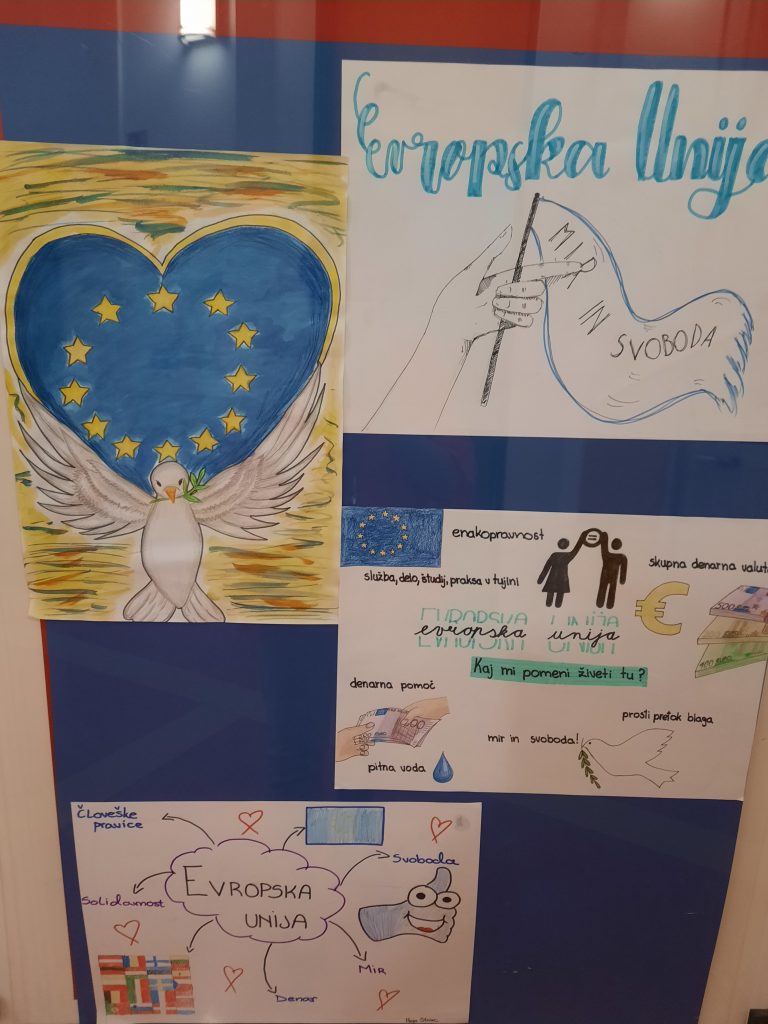 Evropska Unija
MIR
IN
SVOBODA
enakopravnost
skupna denarna valuta
služba, delo, študij, praksa v tujini
500 euro
EVROPSKA UNIJA
evropska unija
Kaj mi pomeni živeti tu?
denarna pomoč
prosti pretok blaga
mir in svoboda!
pitna voda
Človeške
pravice
Svoboda
EVROPSKA
UNIJA
Solidarnost
Mir
Denar